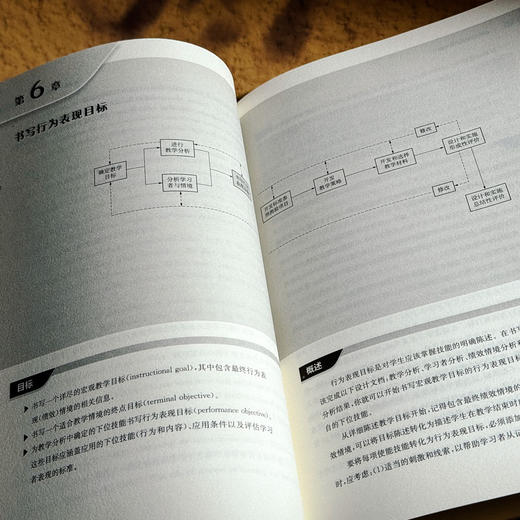 第6章
书写行为表现目标
确定教学
目标
进行
教学分析
分析学习
者与情境
开发
教学策略
开发和选择
教学材料
修改
设计和实施
形成性评价
修改
设计和实施
总结性评价
目标
▶ 书写一个详尽的宏观教学目标(instructional goal),其中包含最终行为表
现(绩效)情境的相关信息。
▶ 书写一个适合教学情境的终点目标(terminal objective)。
▶ 为教学分析中确定的下位技能书写行为表现目标(performance objective)。
这些目标应涵盖应用的下位技能(行为和内容)、应用条件以及评估学习
者表现的标准。
概述
行为表现目标是对学生应该掌握技能的明确陈述。在书
该完成以下设计文档:教学分析、学习者分析、绩效情境分析和
分析结果,你就可以开始书写宏观教学目标的行为表现目标
台的下位技能。
从详细陈述教学目标开始,记得包含最终绩效情境的
效情境,可以将目标陈述转化为描述学生在教学结束时
要将每项使能技能转化为行为表现目标,必须添加
时,应考虑:(1)适当的刺激和线索,以帮助学习者从记